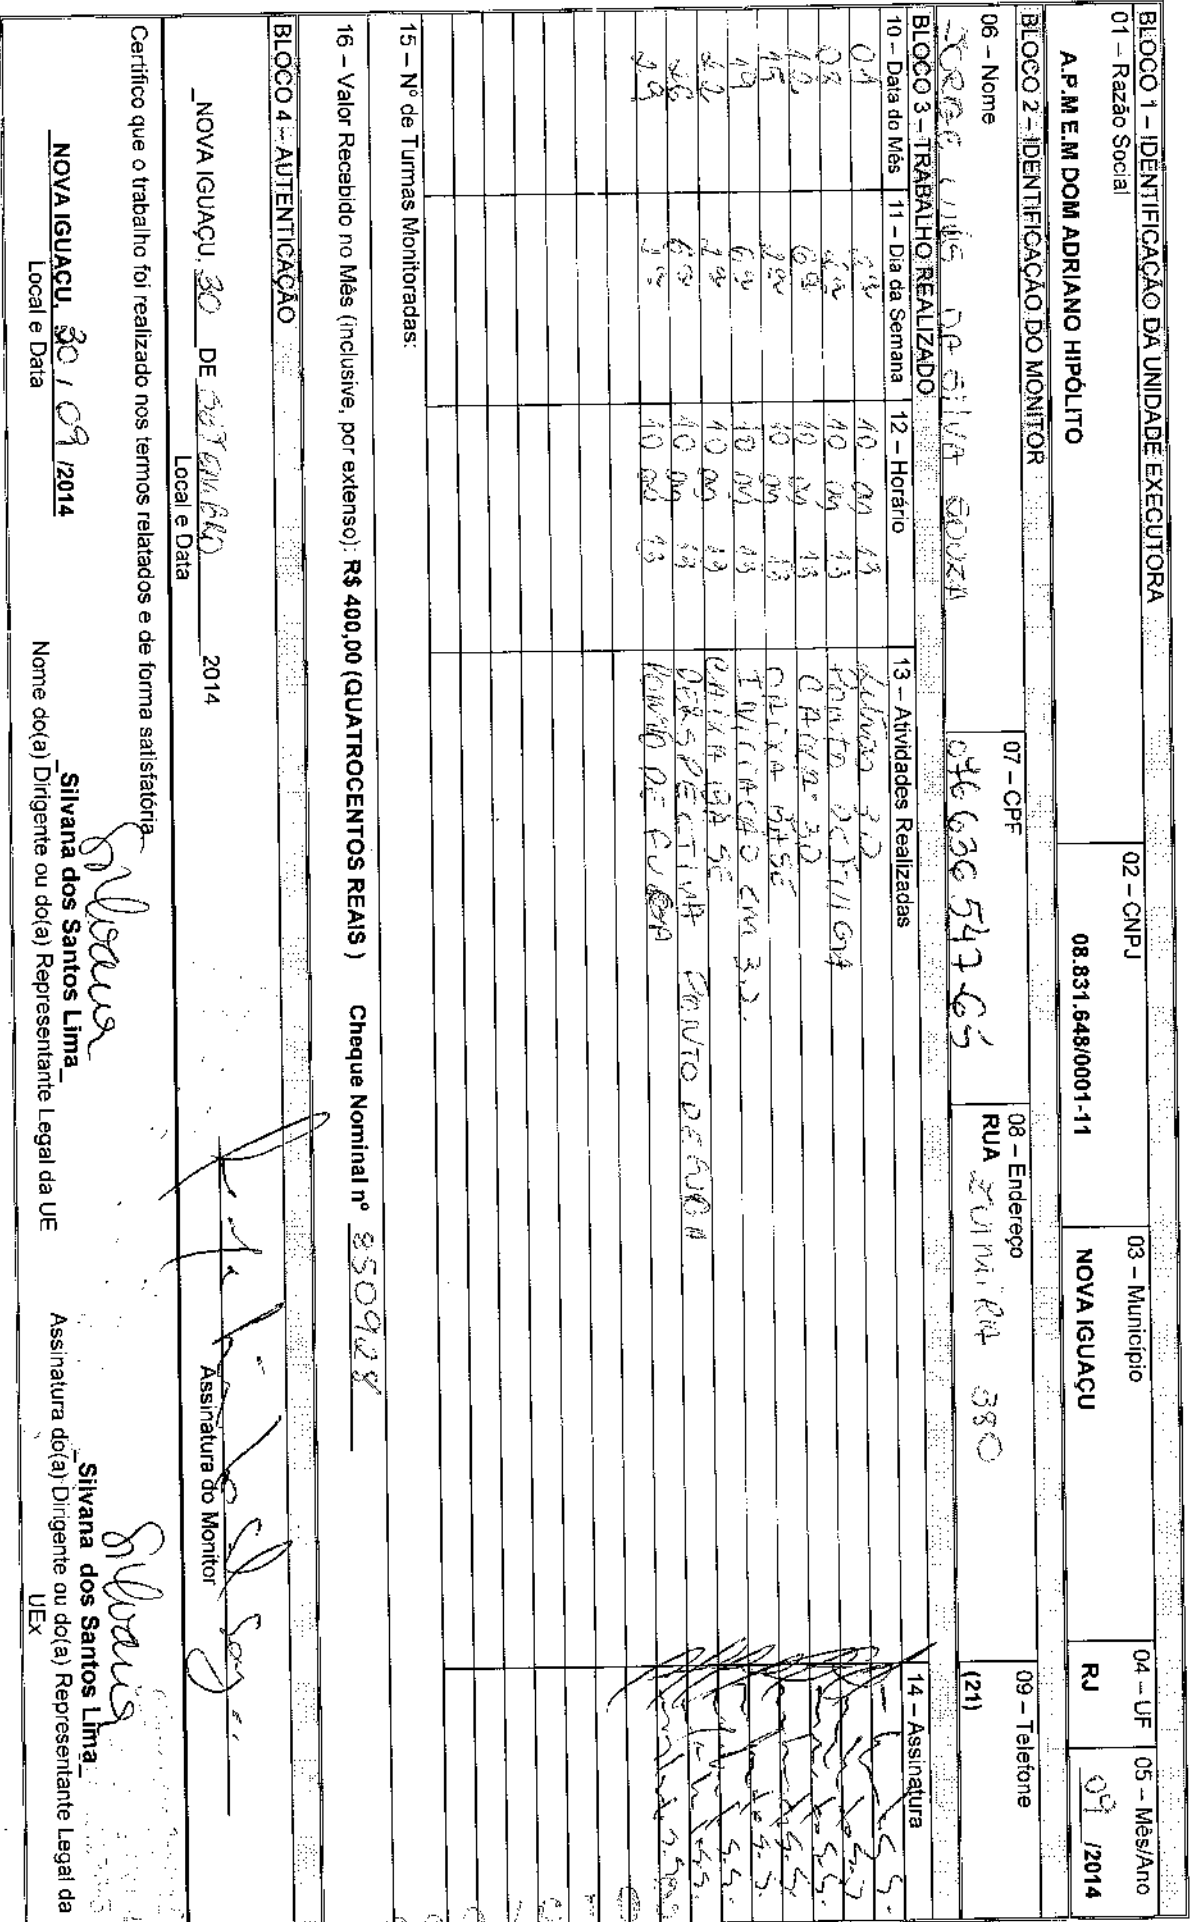 BLOCO 1 – IDENTIFICAÇÃO DA UNIDADE EXECUTORA
01 – Razão Social
A.P.M E.M DOM ADRIANO HIPÓLITO
02 – CNPJ
08.831.648/0001-11
03 – Município
NOVA IGUAÇU
04 – UF
RJ
05 – Mês/Ano
09 /2014
BLOCO 2 – IDENTIFICAÇÃO DO MONITOR
06 – Nome
JORGE LUÍS DA SILVA SOUZA
07 – CPF
076 636 547-65
08 – Endereço
RUA ZULMIRA 380
09 – Telefone
(21)
BLOCO 3 – TRABALHO REALIZADO
10 – Data do Mês 11 – Dia da Semana 12 – Horário 13 – Atividades Realizadas 14 – Assinatura
01 2ª 10 00 13 3D
10 00 13
12 6ª 10 00 13 3D
15 2ª 10 00 13 CAIXA BASE
19 6ª 10 00 13 INICIACAO EM 3D.
22 2ª 10 00 13 CAIXA BASE
26 6ª 10 00 13 PERSPECTIVA PONTO DE FUGA
29 2ª 10 00 13 PONTO DE FUGA
15 – Nº de Turmas Monitoradas:
16 – Valor Recebido no Mês (inclusive, por extenso): R$ 400,00 (QUATROCENTOS REAIS ) Cheque Nominal nº 850928
BLOCO 4 – AUTENTICAÇÃO
_NOVA IGUAÇU, 30 DE SETEMBRO 2014
Local e Data
Assinatura do Monitor
Certifico que o trabalho foi realizado nos termos relatados e de forma satisfatória
NOVA IGUAÇU, 30 / 09 /2014
Local e Data
Silvana
_Silvana dos Santos Lima_
Nome do(a) Dirigente ou do(a) Representante Legal da UE
Silvana
_Silvana dos Santos Lima_
Assinatura do(a) Dirigente ou do(a) Representante Legal da
UEx